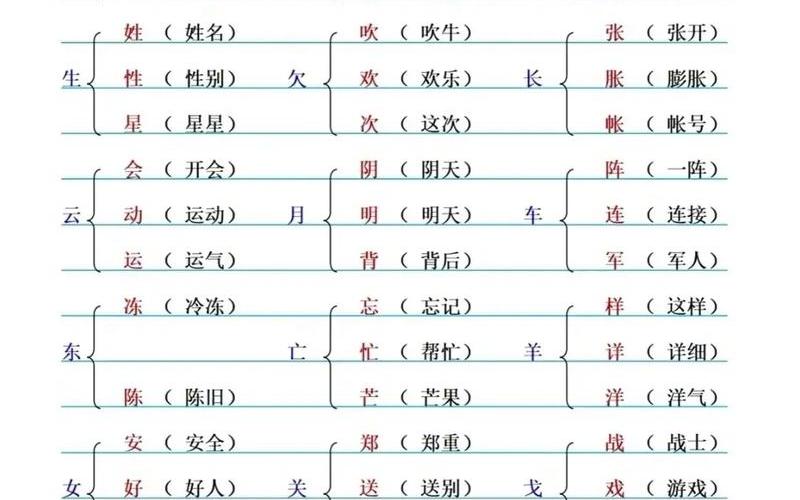 姓（ 姓名） 吹（ 吹牛） 张（ 张开）
生 性（ 性别） 欠 欢（ 欢乐） 长 胀（ 膨胀）
星（ 星星） 次（ 这次） 帐（ 帐号）
会（ 开会） 阴（ 阴天） 阵（ 一阵）
云 动（ 运动） 月 明（ 明天） 车 连（ 连接）
运（ 运气） 背（ 背后） 军（ 军人）
冻（ 冷冻） 忘（ 忘记） 样（ 这样）
东 亡 忙（ 帮忙） 羊 详（ 详细）
陈（ 陈旧） 芒（ 芒果） 洋（ 洋气）
安（ 安全） 郑（ 郑重） 战（ 战士）
女 好（ 好人） 关 送（ 送别） 戈 戏（ 游戏）